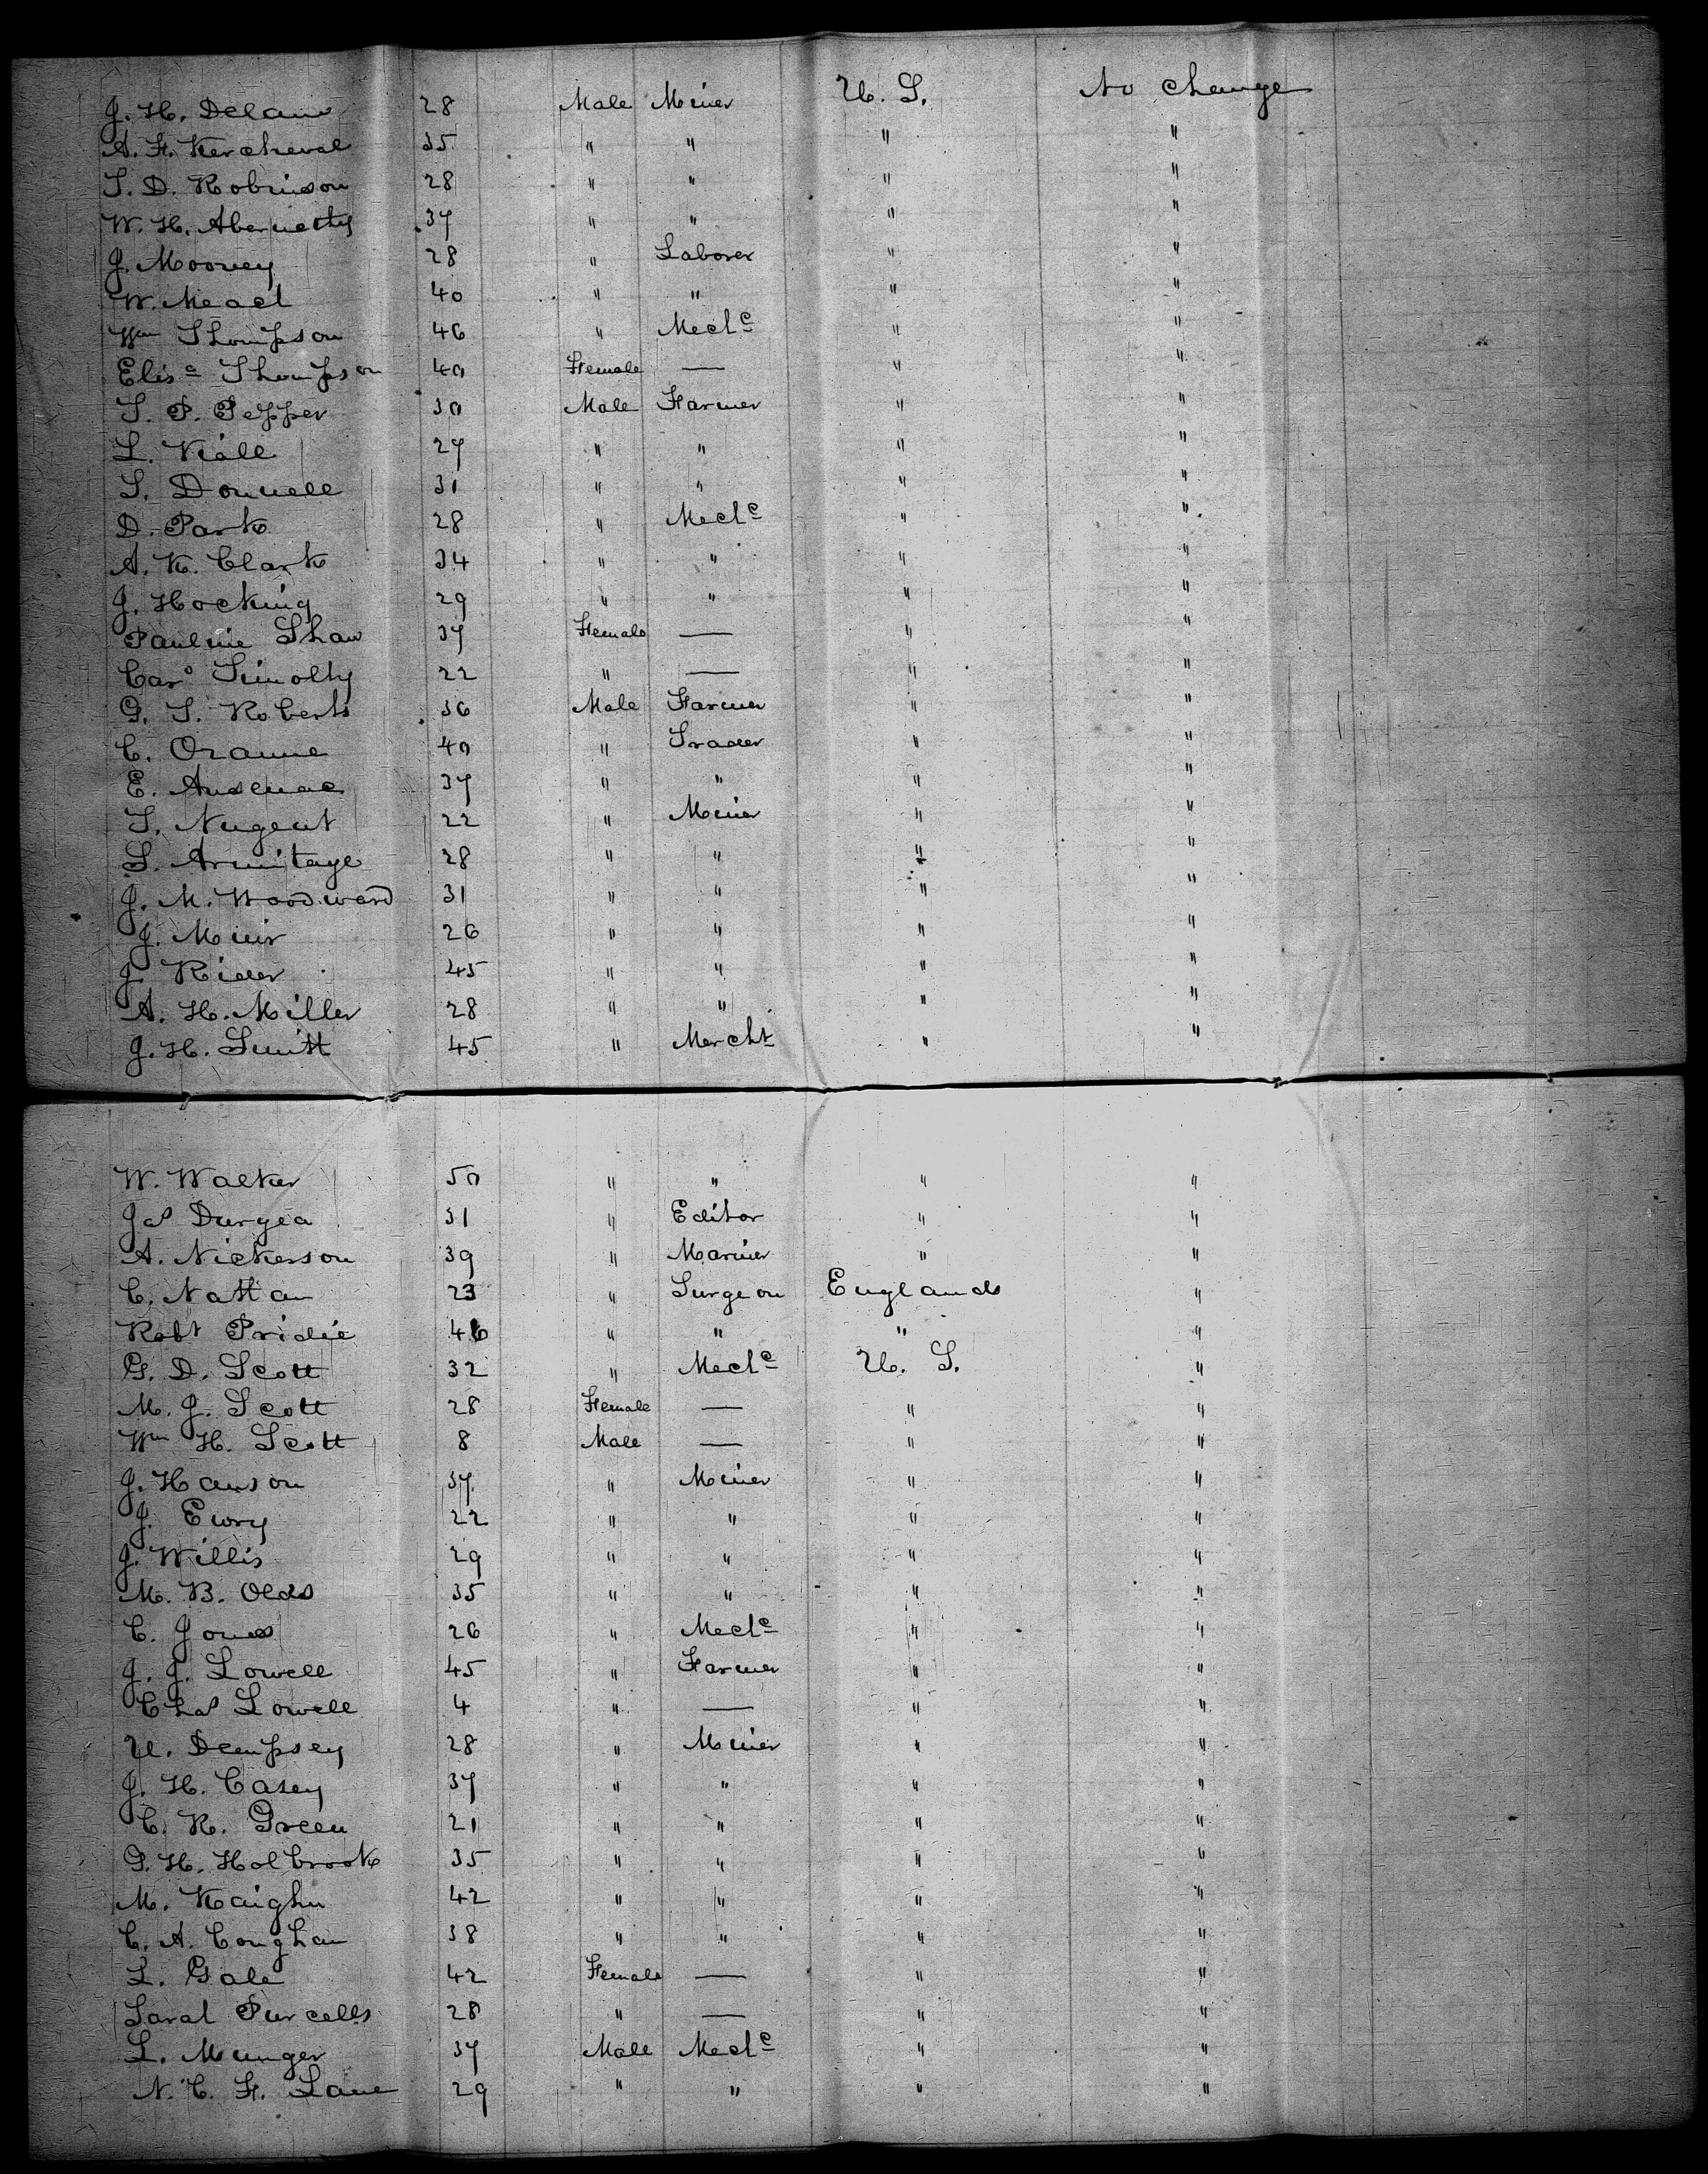 J. H. Delano 28 Male Miner U. S. No change
A. F. Kercheval 35 " " " "
T. D. Robinson 28 " " " "
W. H. Abernethy 37 " " " "
J. Mooney 28 " Laborer " "
W. Mead 40 " " " "
Wm Thompson 46 " Mechc " "
Elisa Thompson 40 Female — " "
T. P. Pepper 30 Male Farmer " "
L. Niall 27 " " " "
S. Donnell 31 " " " "
D. Park 28 " Mechc " "
A. K. Clark 34 " " " "
J. Hocking 29 " " " "
Pauline Shaw 37 Female — " "
Caro Timothy 22 " — " "
G. T. Roberts 36 Male Farmer " "
C. Oranne 40 " Trader " "
E. 37 " " " "
T. Nugent 22 " Miner " "
S. Armitage 28 " " " "
J. M. Woodward 31 " " " "
J. Muir 26 " " " "
J. Rider 45 " " " "
A. H. Miller 28 " " " "
J. H. Smith 45 " Mercht " "
W. Walker 50 " " " "
Jas Duryea 31 " Editor " "
A. Nickerson 39 " Marinr " "
C. Nathan 23 " Surgeon England "
Robt Pridie 46 " " " "
G. D. Scott 32 " Mechc U. S. "
M. J. Scott 28 Female — " "
Wm H. Scott 8 Male — " "
J. Hanson 37 " Miner " "
J. Ewry 22 " " " "
J. Willis 29 " " " "
M. B. Olds 35 " " " "
C. Jones 26 " Mechc " "
J. J. Lowell 45 " Farmer " "
Chas Lowell 4 " — " "
U. Dempsey 28 " Miner " "
J. H. Casey 37 " " " "
C. K. Green 21 " " " "
G. H. Holbrook 35 " " " "
M. Kaighn 42 " " " "
C. A. Coughan 38 " " " "
L. Gale 42 Female — " "
Sarah Purcells 28 " — " "
L. Munger 37 Male Mechc " "
N. C. F. Lane 29 " " " "